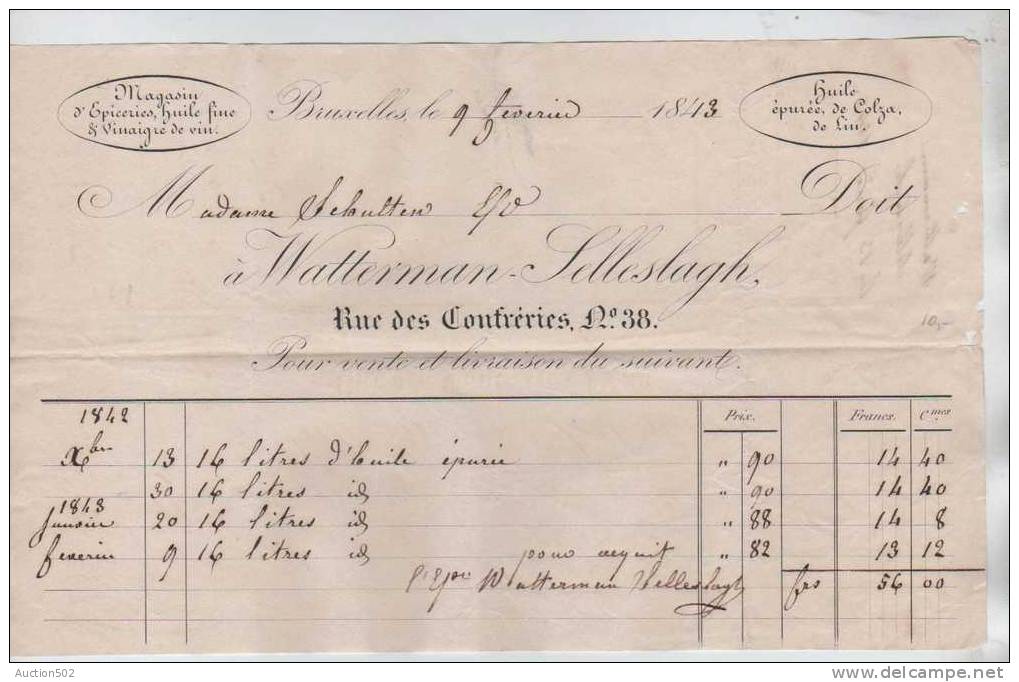 Magasin
d'Epiceries, huile fine
& Vinaigre de vin.
Bruxelles, le 9 feverier 1843
Huile
épurée, de Colza,
de Lin.
Madame Schulten Doit
à Watterman-Selleslagh,
Rue des Confréries, Nº 38.
10,-
Pour vente et livraison du suivant.
1842 Prix. Francs. Cmes
Xber 13 16 litres d'huile épurée " 90 14 40
30 16 litres id " 90 14 40
1843
Janvier 20 16 litres id " 88 14 8
feverier 9 16 litres id pour acquit " 82 13 12
Watterman Selleslagh frs 56 00
Auction502
delcampe.net